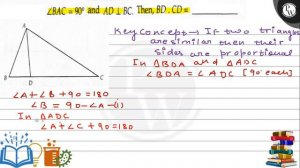 ∠BAC = 90° and AD ⊥ BC. Then, BD . CD = ____
A
B
D
C
Key concept → If two triangles
are similar then their
sides are proportional
In △BDA and △ADC
∠BDA = ∠ADC [90° each]
∠A + ∠B + 90 = 180
∠B = 90 - ∠A -(1)
In △ADC
∠A + ∠C + 90 = 180